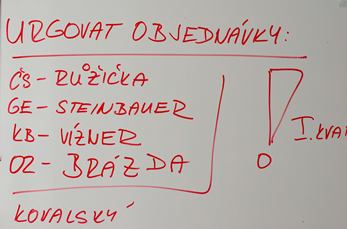 URGOVAT OBJEDNÁVKY:
ČS - RŮŽIČKA
GE - STEINBAUER
KB - VÍZNER
O2 - BRÁZDA
KOVALSKÝ
!
I. KVA